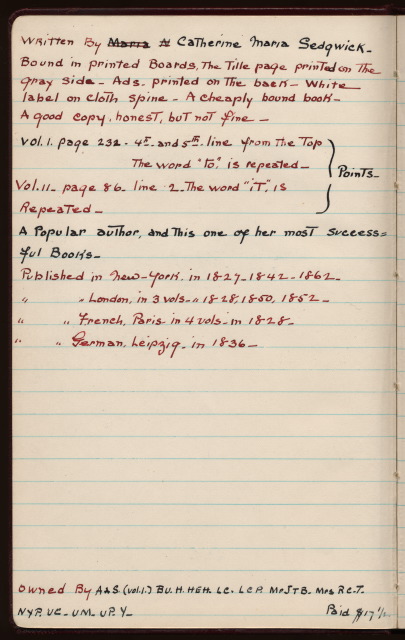 Written By Maria N Catherine Maria Sedgwick-
Bound in printed Boards, The Title page printed on The
gray side - Ads. printed on The back - White
label on cloth spine - A cheaply bound book -
A good copy, honest, but not fine -
Vol. I. page 232 - 4th and 5th line from The Top
The word "To", is repeated -
Points-
Vol. II - page 86 - line 2 - The word "iT", is
Repeated -
A Popular author, and This one of her most success=
ful Books -
Published in New-York, in 1827-1842-1862-
" " London, in 3 vols - " 1828, 1850, 1852 -
" " French, Paris in 4 vols - in 1828 -
" " German, Leipzig - in 1836 -
Owned By AAS. (vol.1.) BU. H. HEH. LC. LCP. Mr JTB. Mrs RCT.
NYP. UC - UM - UP. Y -
Paid $17 1/2